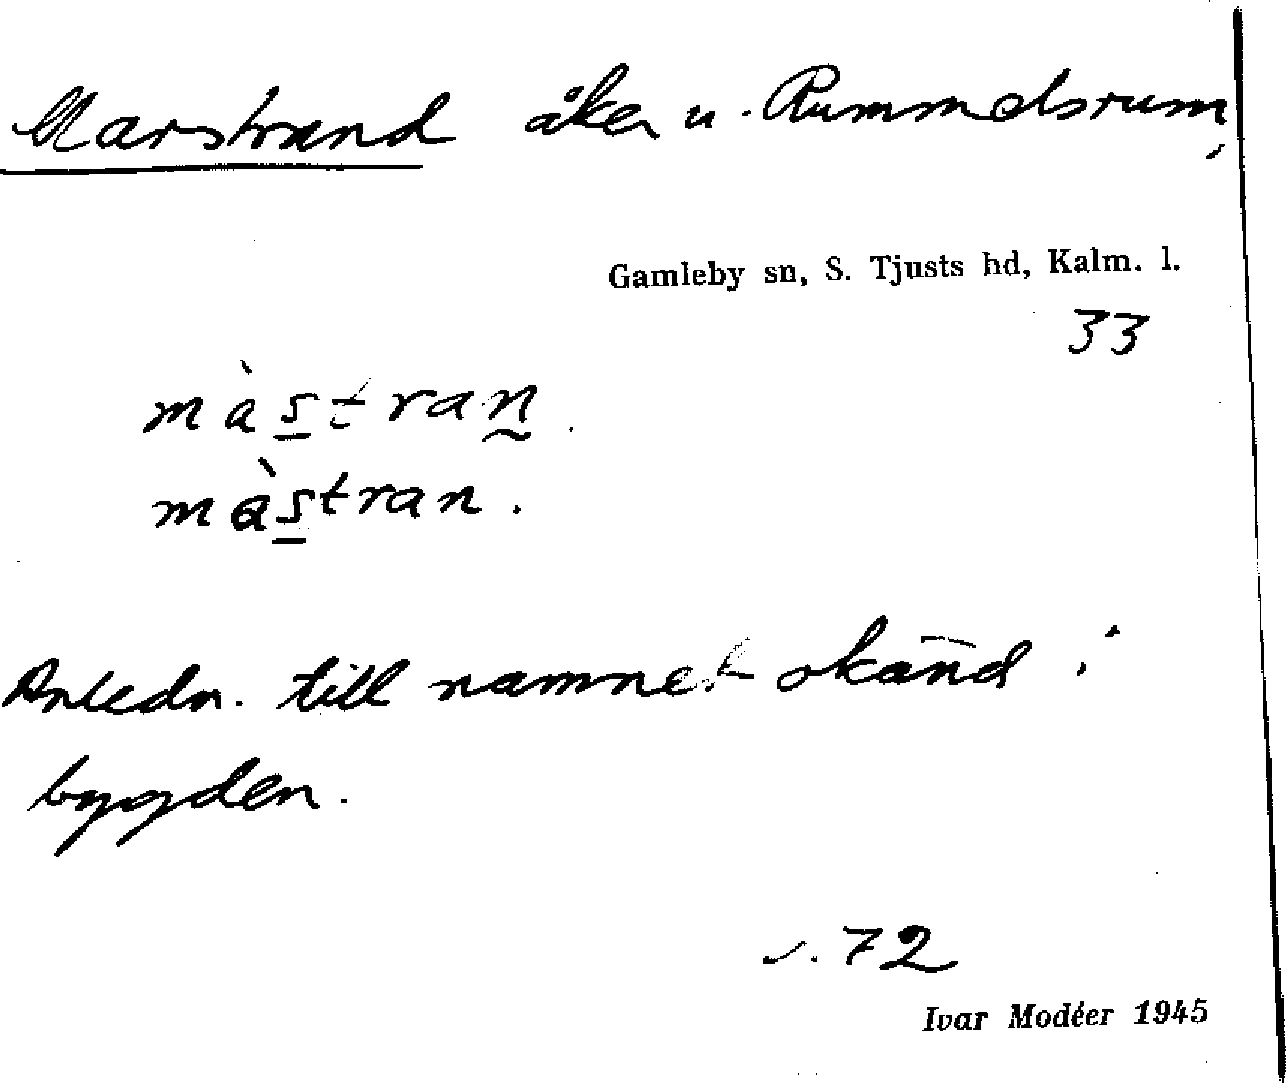 Marstrand åker u. Rummelsrum,
Gamleby sn, S. Tjusts hd, Kalm. l.
33
màstran.
màstran.
Anledn. till namnet okänd i
bygden.
s. 72
Ivar Modéer 1945